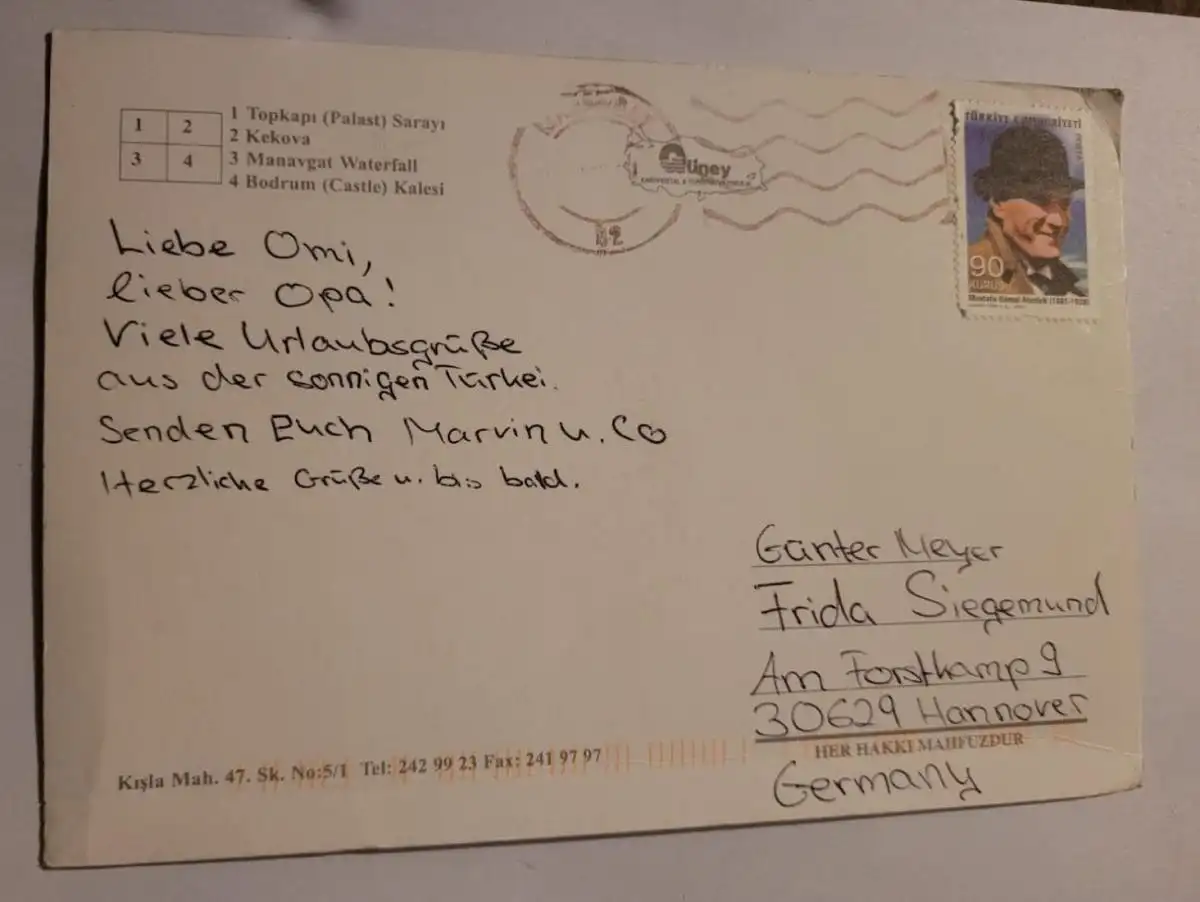 1 2
3 4
1 Topkapı (Palast) Sarayı
2 Kekova
3 Manavgat Waterfall
4 Bodrum (Castle) Kalesi
Güney
TÜRKİYE CUMHURİYETİ
POSTA
90
KURUŞ
Mustafa Kemal Atatürk (1881-1938)
Liebe Omi,
lieber Opa!
Viele Urlaubsgrüße
aus der sonnigen Türkei.
Senden Euch Marvin u. Co
Herzliche Grüße u. bis bald.
Günter Meyer
Frida Siegemund
Am Forstkamp 9
30629 Hannover
HER HAKKI MAHFUZDUR
Germany
Kışla Mah. 47. Sk. No:5/1 Tel: 242 99 23 Fax: 241 97 97